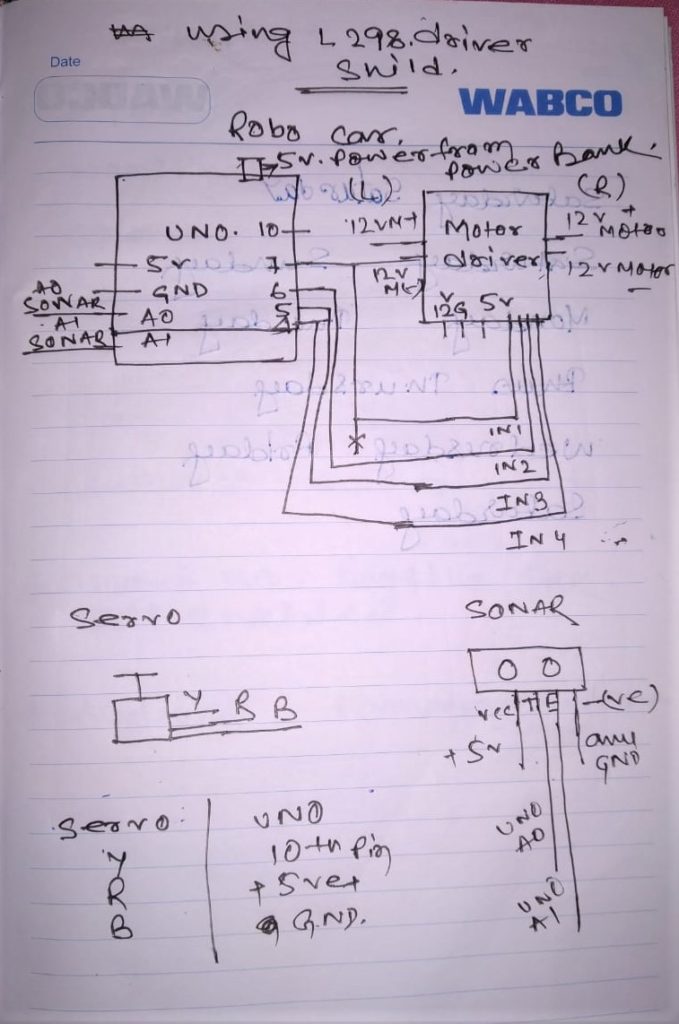 using L298.driver
Shild.
Date
WABCO
Robo car.
5v. power from power Bank.
(L)
(R)
UNO. 10
5v 7
GND 6
A0 5
A1 4
A0
SONAR
A1
SONAR
12V M+
12V
M(-)
Motor
driver
12V G 5v
12V + Motor
12V Motor
-
IN1
IN2
IN3
IN4
Servo
Y R B
SONAR
O O
vcc T E -(ve)
+5v
any
GND
UNO
A0
UNO
A1
Servo: UNO
Y 10th Pin
R +5ve+
B GND.